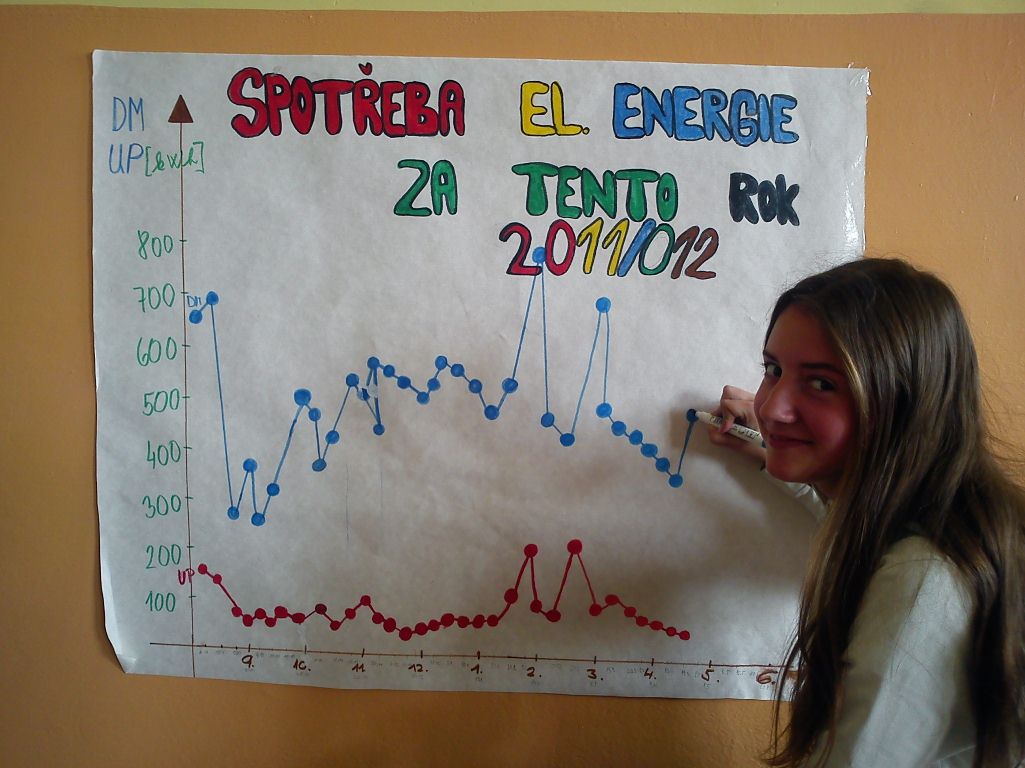 SPOTŘEBA EL. ENERGIE
ZA TENTO ROK
2011/012
DM
UP [kwh]
800
700
DM
600
500
400
300
200
UP
100
9. 10. 11. 12. 1. 2. 3. 4. 5. 6.